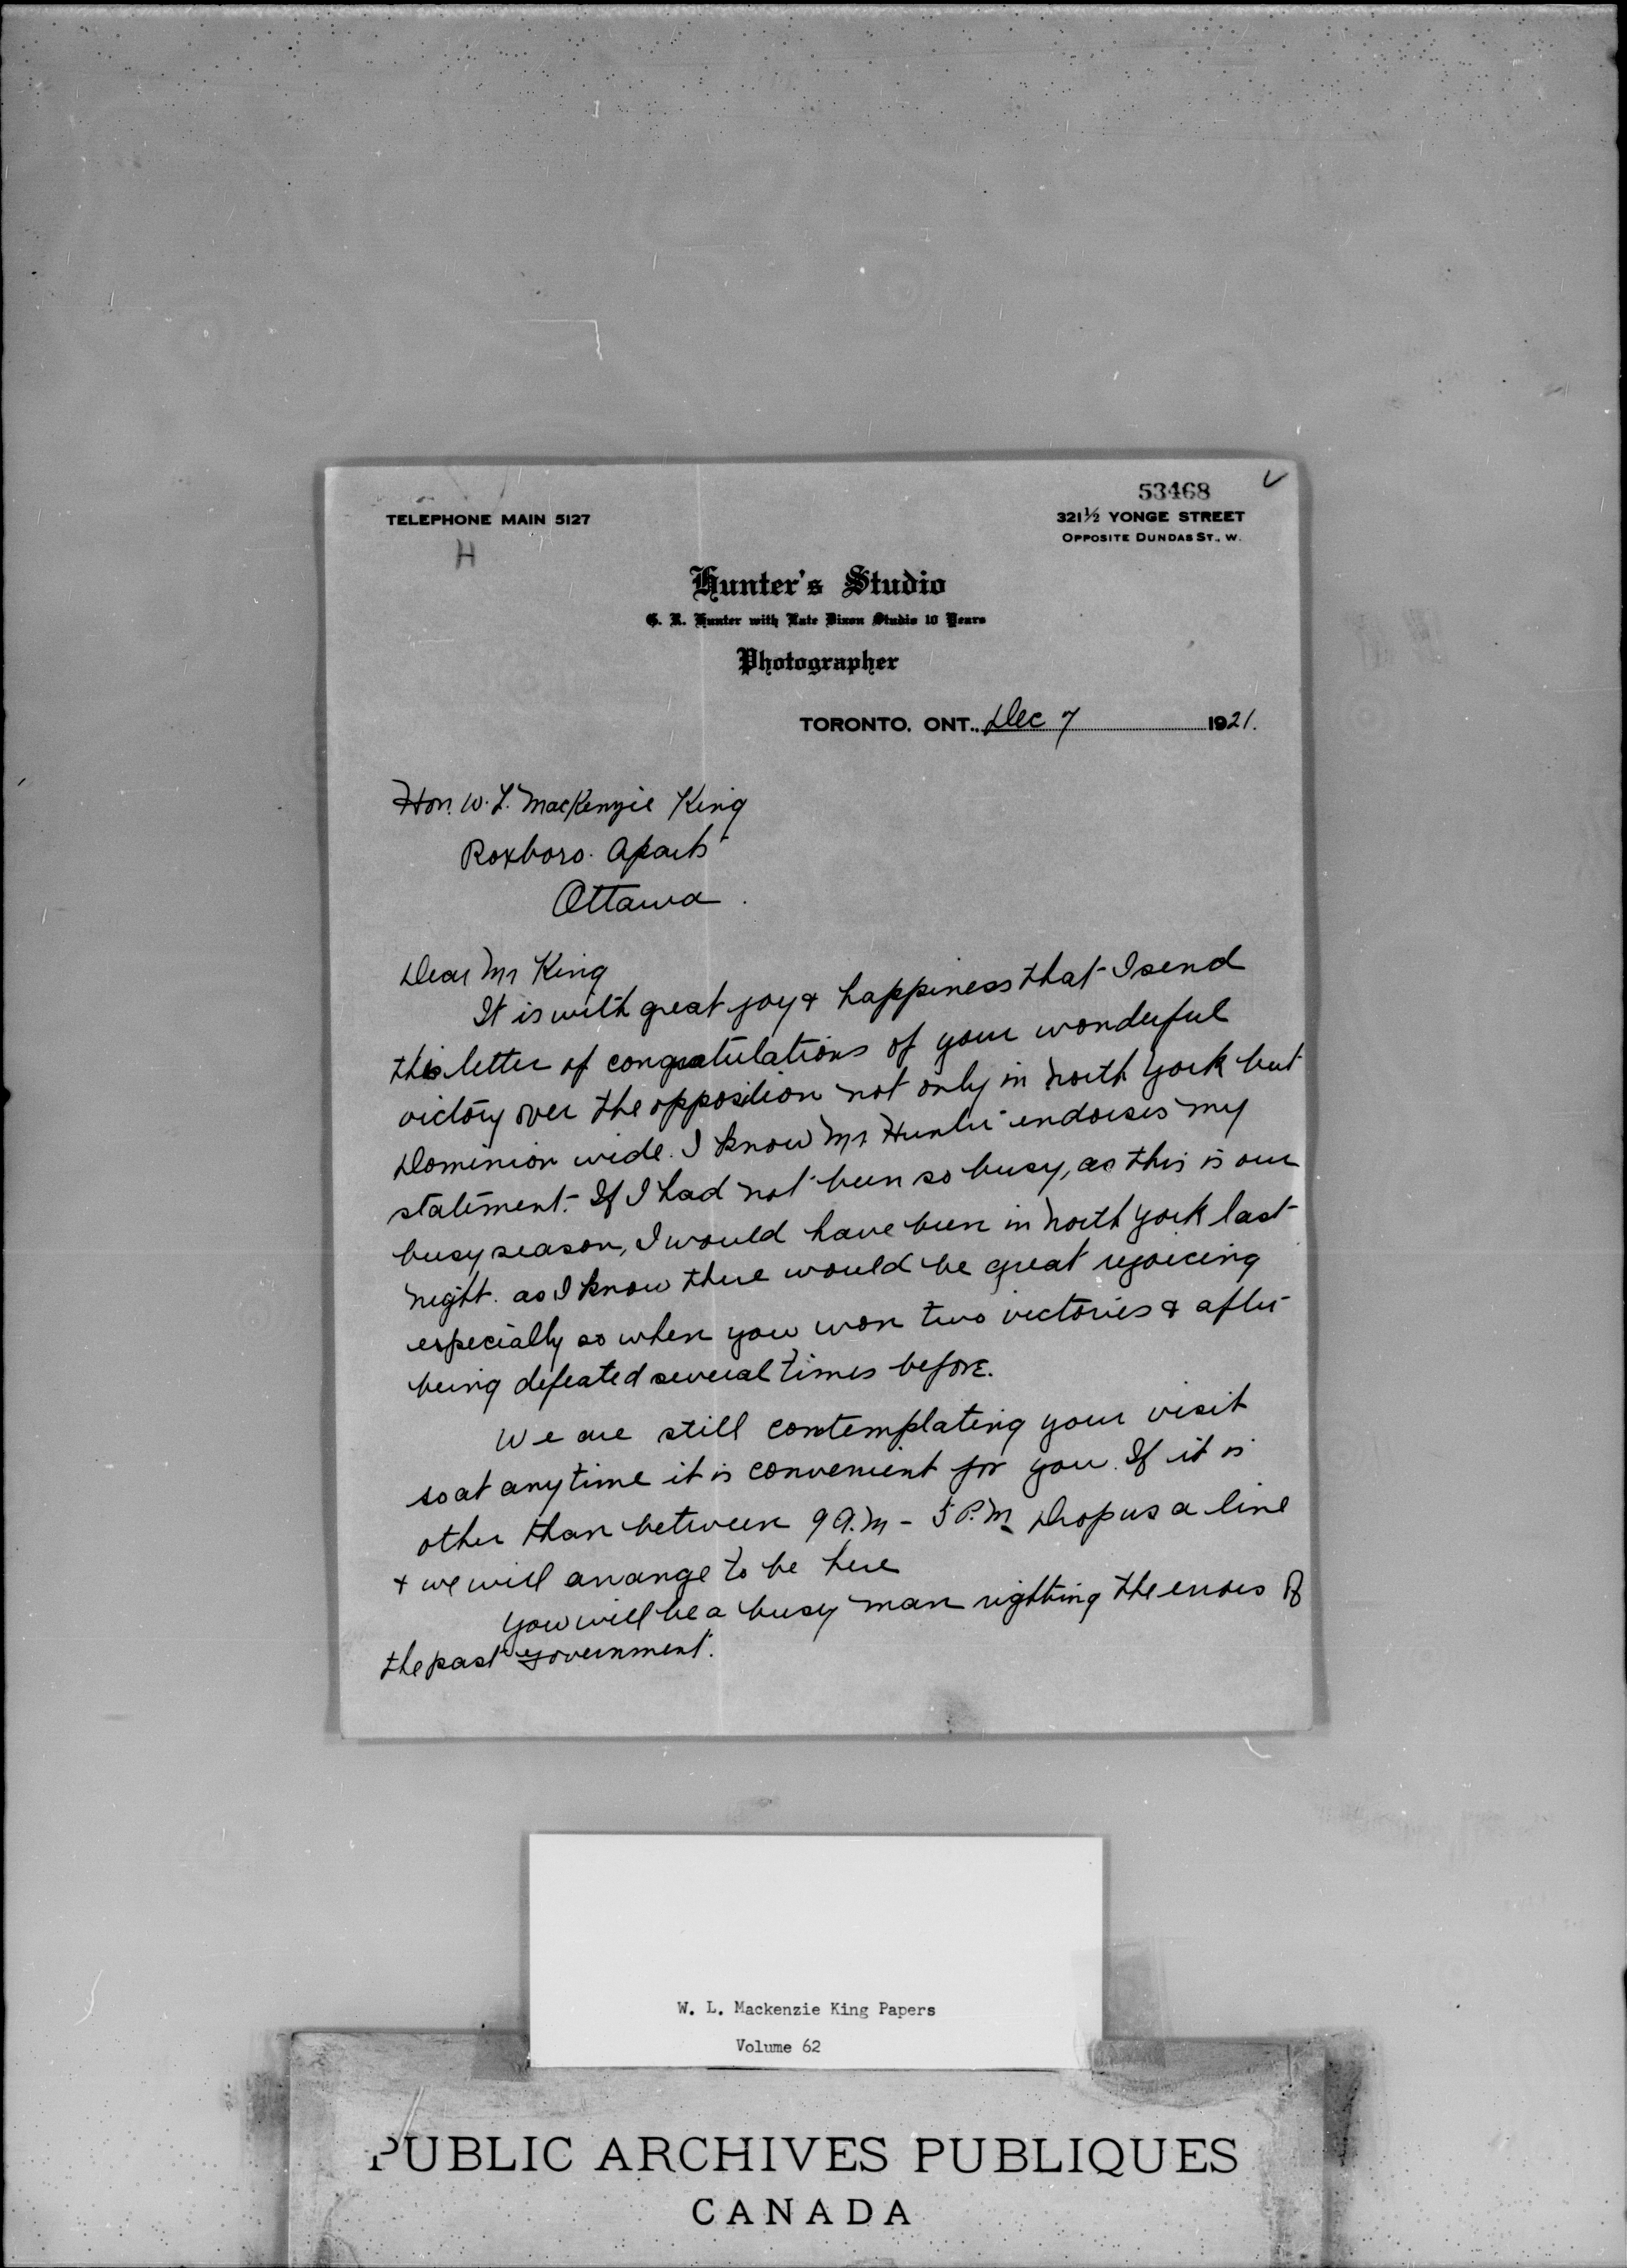 53468
TELEPHONE MAIN 5127
321½ YONGE STREET
OPPOSITE DUNDAS ST., W.
H
Hunter's Studio
G. R. Hunter with Late Dixon Studio 10 Years
Photographer
TORONTO, ONT., Dec 7 1921.
Hon. W. L. MacKenzie King
Roxboro. Aparts
Ottawa.
Dear Mr King
It is with great joy & happiness that I send
this letter of congratulations of your wonderful
victory over the opposition not only in North York but
Dominion wide. I know Mr Hunter endorses my
statement. If I had not been so busy, as this is our
busy season, I would have been in North York last
night. as I know there would be great rejoicing
especially so when you won two victories & after
being defeated several times before.
We are still contemplating your visit
so at anytime it is convenient for you. If it is
other than between 9 A.M - 5 P.M Drop us a line
& we will arrange to be here
You will be a busy man righting the errors of
the past government.
W. L. Mackenzie King Papers
Volume 62
PUBLIC ARCHIVES PUBLIQUES
CANADA